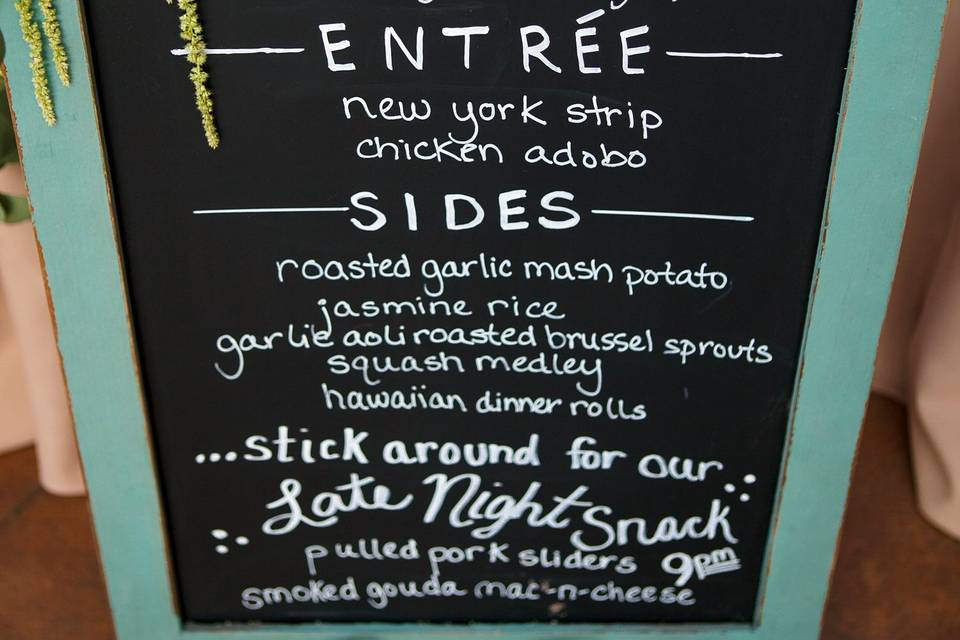 ENTRÉE
new york strip
chicken adobo
SIDES
roasted garlic mash potato
jasmine rice
garlic aoli roasted brussel sprouts
squash medley
hawaiian dinner rolls
...stick around for our...
Late Night Snack
pulled pork sliders 9pm
smoked gouda mac-n-cheese